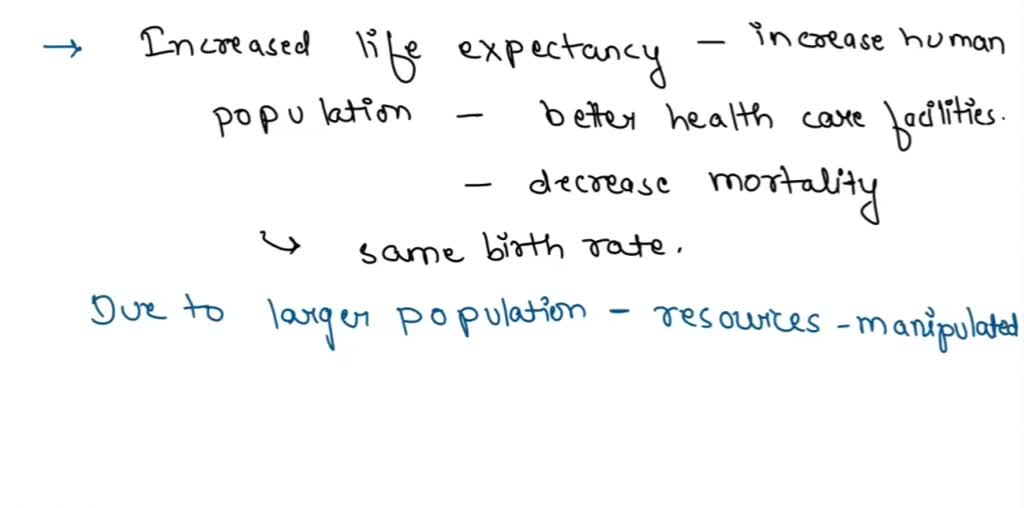 → Increased life expectancy – increase human
population – better health care facilities.
– decrease mortality
↳ same birth rate.
Due to larger population – resources – manipulated